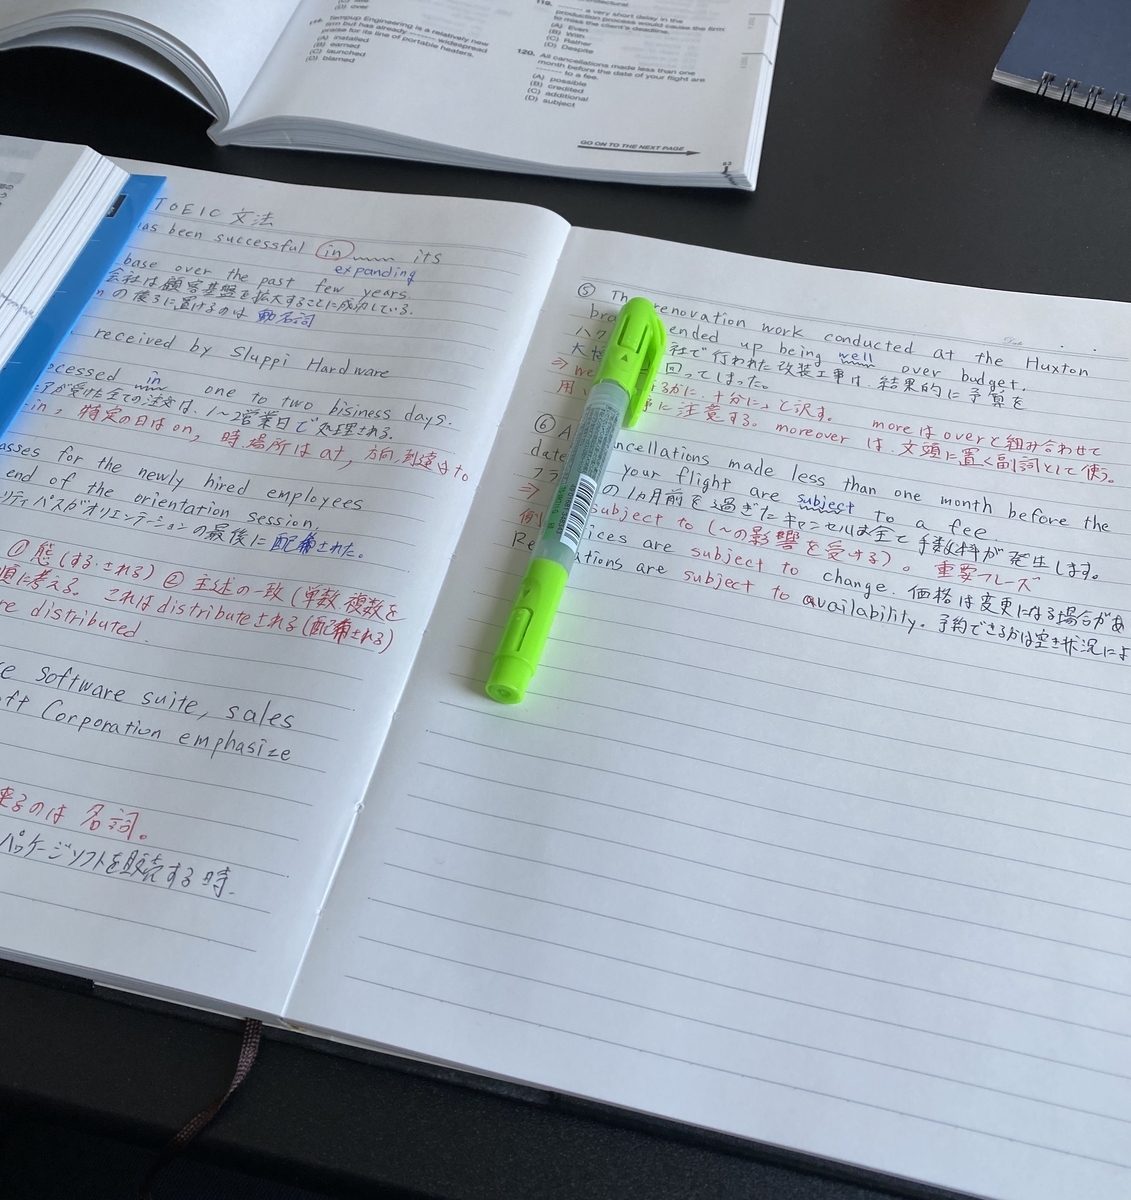 (D) over
114. Tempup Engineering is a relatively new
firm but has already ------- widespread
praise for its line of portable heaters.
(A) installed
(B) earned
(C) launched
(D) blamed
119. ------- a very short delay in the
production process would cause the firm
to miss the client's deadline.
(A) Even
(B) With
(C) Rather
(D) Despite
120. All cancellations made less than one
month before the date of your flight are
------- to a fee.
(A) possible
(B) credited
(C) additional
(D) subject
GO ON TO THE NEXT PAGE
TOEIC 文法
has been successful in its
expanding
base over the past few years.
会社は顧客基盤を拡大することに成功している。
の後ろに置けるのは 動名詞
received by Sluppi Hardware
ocessed in one to two bisiness days.
アが受けた全ての注文は、1〜2営業日で処理される。
in, 特定の日はon, 時、場所はat, 方向、到達はto
asses for the newly hired employees
end of the orientation session.
リティパスがオリエンテーションの最後に配布された。
①態(する・される) ② 主述の一致(単数 複数を
順に考える。これはdistributeされる(配布される)
re distributed.
e Software suite, sales
ff Corporation emphasize
来るのは 名詞。
パッケージソフトを販売する時、
⑤ The renovation work conducted at the Huxton
bra ended up being well over budget.
ハク 社で行われた改装工事は、結果的に予算を
大 回ってしまった。
⇒ we るかに、十分に」と訳す。 moreはoverと組み合わせて
用い 事に注意する。moreover は、文頭に置く副詞として使う。
⑥ A ncellations made less than one month before the
date your flight are subject to a fee.
フラ の1ヵ月前を過ぎたキャンセルは全て手数料が発生します。
⇒ subject to (〜の影響を受ける)。重要フレーズ
例 ices are subject to change. 価格は変更になる場合があ
Re ations are subject to availability. 予約できるかは空き状況によ